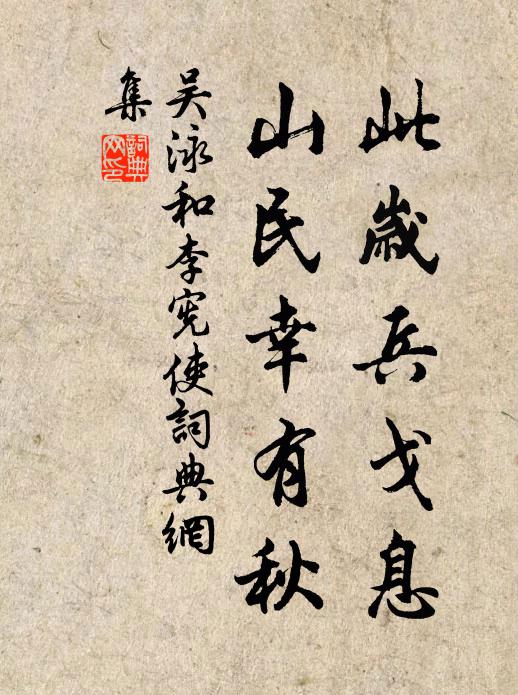 此歲兵戈息
山民幸有秋
吳泳和李宪使詞典網
集
詞典
网印